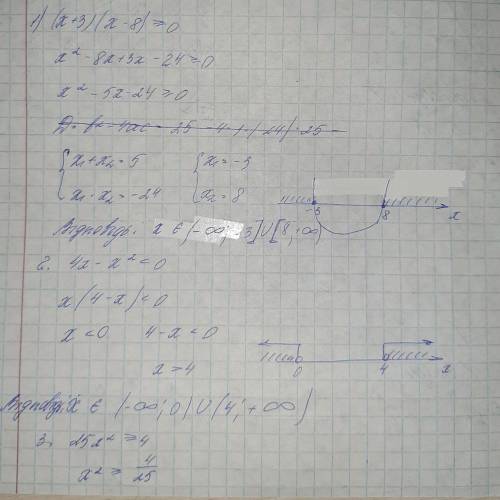 1) (x+3)(x-8)≥0
x²-8x+3x-24≥0
x²-5x-24≥0
{x₁+x₂=5 {x₁=-3
{x₁·x₂=-24 {x₂=8
-3 8 x
Відповідь: x ∈ (-∞; -3]∪[8; +∞)
2. 4x-x²<0
x(4-x)<0
x<0 4-x<0
x>4
0 4 x
Відповідь: x ∈ (-∞; 0)∪(4; +∞)
3. 25x²≥4
x²≥4/25